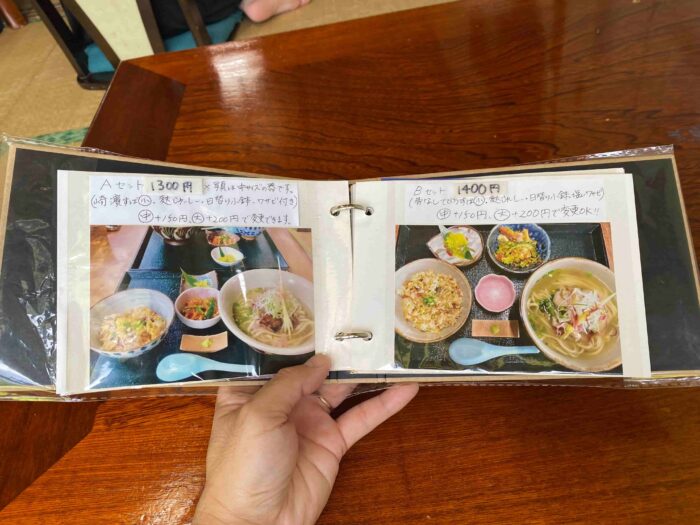 Aセット 1300円 ※写真は中サイズの寄です。
そば(小)、麩ちゃんぷるー、日替り小鉢、ワサビ付き)
(中)+150円、(大)+200円で変更できます
Bセット 1400円
(骨なしてびちすば(小)、麩、日替り小鉢、塩、ワサビ)
(中)+150円、(大)+200円で変更OK!!